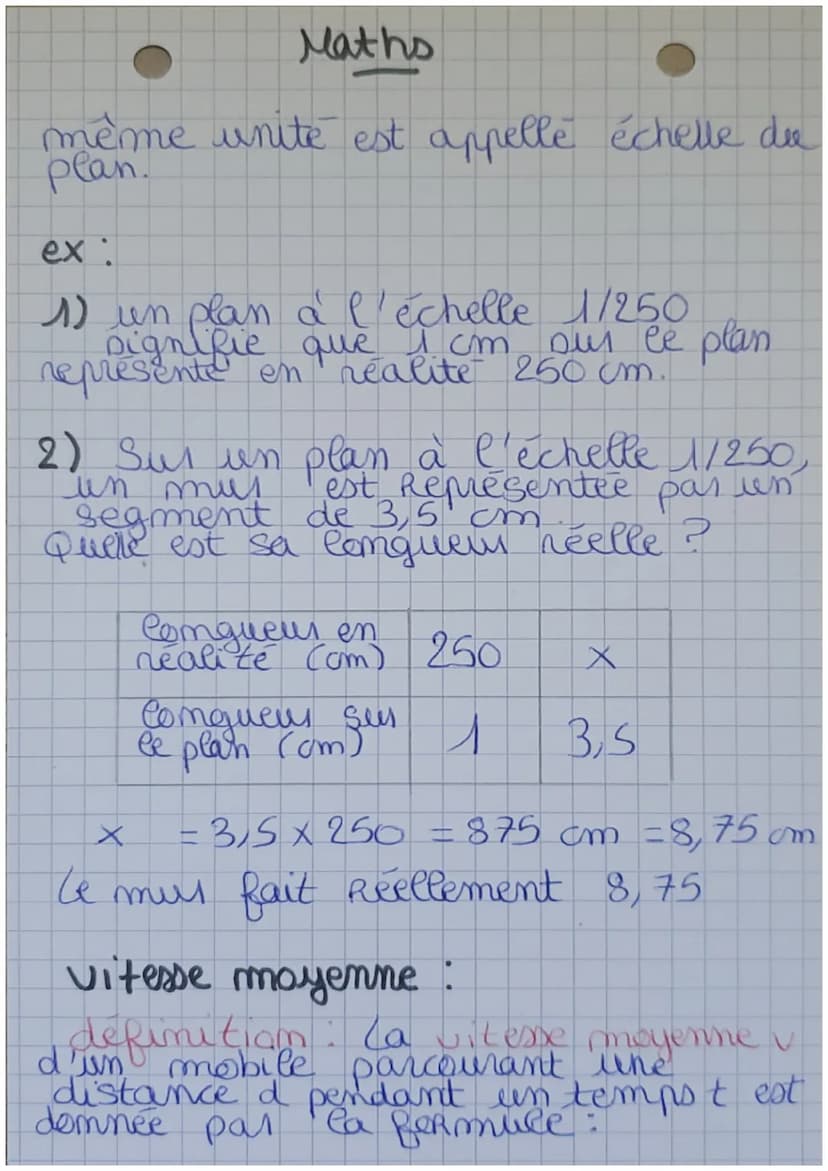 Maths
même unité est appellé échelle du
plan.
ex :
1) un plan à l'échelle 1/250
signifie que 1 cm sur le plan
représente en réalité 250 cm.
2) Sur un plan à l'échelle 1/250,
un mur est Représentée par un
segment de 3,5 cm.
Quele est sa longueur réelle ?
longueur en
réalité (cm) 250 x
longueur sur
le plan (cm) 1 3,5
x = 3,5 x 250 = 875 cm = 8,75 cm
Le mur fait Réellement 8,75
vitesse moyenne :
définition : La vitesse moyenne v
d'un mobile parcourant une
distance d pendant un temps t est
donnée par la formule :